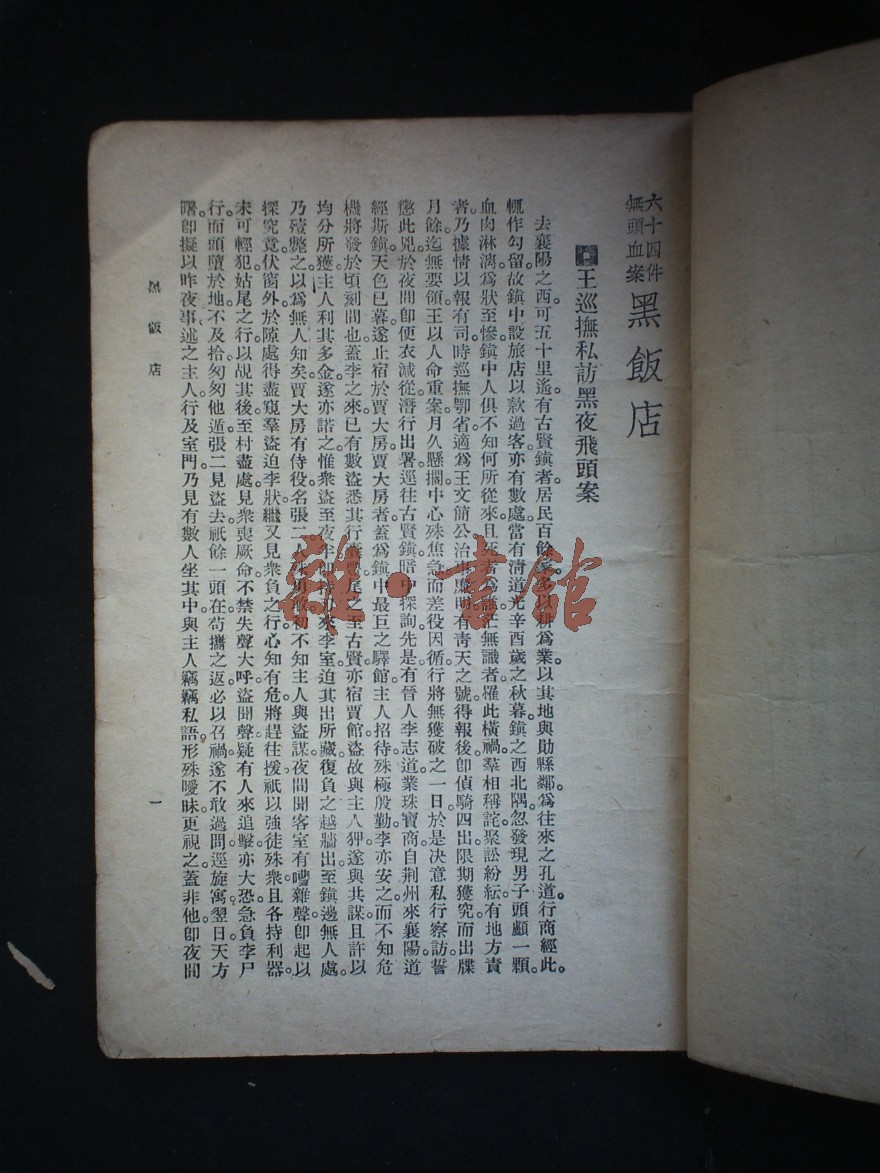 六十四件
無頭血案
黑飯店
王巡撫私訪黑夜飛頭案
去襄陽之西。可五十里遙。有古賢鎭者。居民百餘家。多以耕為業。以其地與勛縣鄰。為往來之孔道。行商經此。
輒作勾留。故鎭中設旅店以款過客。亦有數處。當有淸道光辛酉歲之秋暮。鎭之西北隅。忽發現男子頭顱一顆。
血肉淋漓。為狀至慘。鎭中人俱不知何所從來。且死者為誰。茫無識者。罹此橫禍。羣相稱詫。聚訟紛紜。有地方責
者。乃據情以報有司。時巡撫鄂省。適為王文簡公。治世廉明。有靑天之號。得報後。卽偵騎四出。限期獲究。而出牒
月餘。迄無要領。王以人命重案。月久懸擱。中心殊焦急。而差役因循。行將無獲破之一日。於是決意私行察訪。誓
懲此兇。於夜間卽便衣減從。潛行出署。逕往古賢鎭。暗中探詢。先是有晉人李志道業珠寶商。自荆州來襄陽。道
經斯鎭。天色已暮。遂止宿於賈大房。賈大房者。蓋為鎭中最巨之驛館。主人招待。殊極殷勤。李亦安之。而不知危
機將發於頃刻間也。蓋李之來。已有數盜悉其行囊豐。尾之至古賢。亦宿賈館。盜故與主人狎。遂與共謀。且許以
均分所獲。主人利其多金。遂亦諾之。惟衆盜至夜半。卽 來李室。迫其出所藏。復負之越牆出。至鎭邊無人處。
乃殪斃之。以為無人知矣。賈大房有侍役名張二 勇敢。初不知主人與盜謀。夜間聞客室有嘈雜聲。卽起以
探究竟。伏窗外於隙處得盡窺羣盜迫李狀。繼又見衆負之行。心知有危。將趕往援。祇以強徒殊衆。且各持利器。
未可輕犯。姑尾之行。以覘其後。至村盡處。見衆喪厥命。不禁失聲大呼。盜聞聲。疑有人來追擊。亦大恐。急負李尸
行。而頭墮於地。不及拾。匆匆他遁。張二見盜去。祇餘一頭在。苟攜之返。必以召禍。遂不敢過問。逕旋寓。翌日天方
曙。卽擬以昨夜事述之主人。行及室門。乃見有數人坐其中。與主人竊竊私語。形殊曖昧。更視之。蓋非他。卽夜間
黑飯店
一
雜·書館